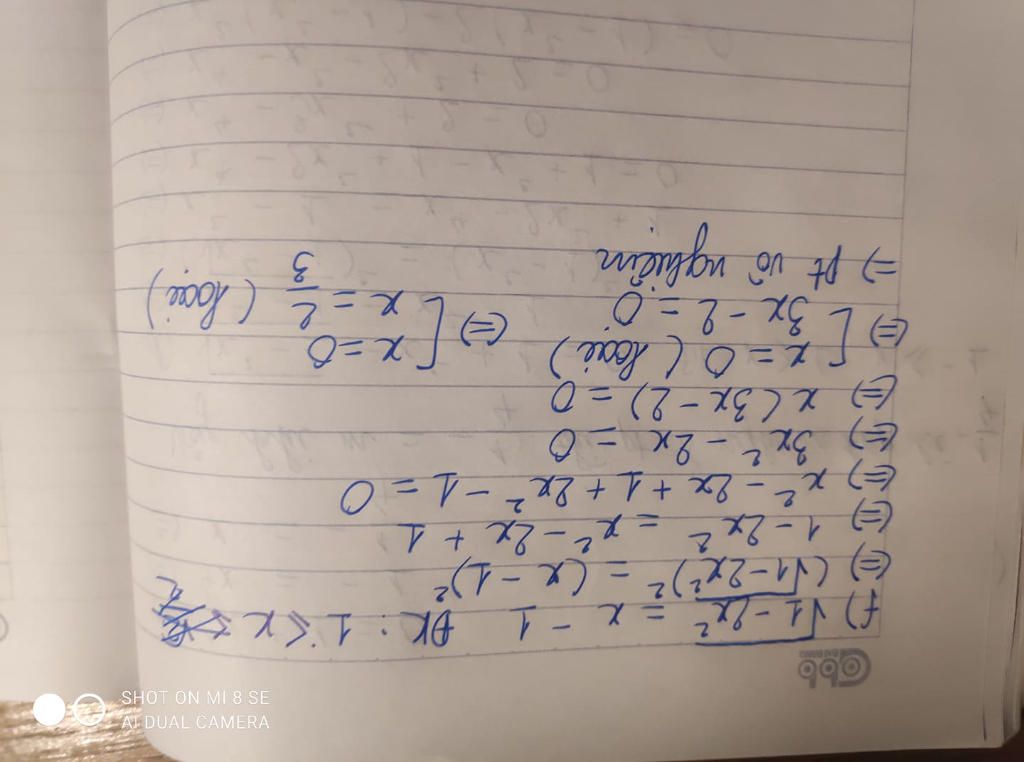 Cbb
f) √1-2x² = x - 1 ĐK: 1 ≤ x ≤
(=) (√1-2x²)² = (x - 1)²
(=) 1 - 2x² = x² - 2x + 1
(=) x² - 2x + 1 + 2x² - 1 = 0
(=) 3x² - 2x = 0
(=) x(3x - 2) = 0
(=) [ x = 0 (loại) (=) [ x = 0
3x - 2 = 0 x = 2/3 (loại)
=) pt vô nghiệm
SHOT ON MI 8 SE
AI DUAL CAMERA